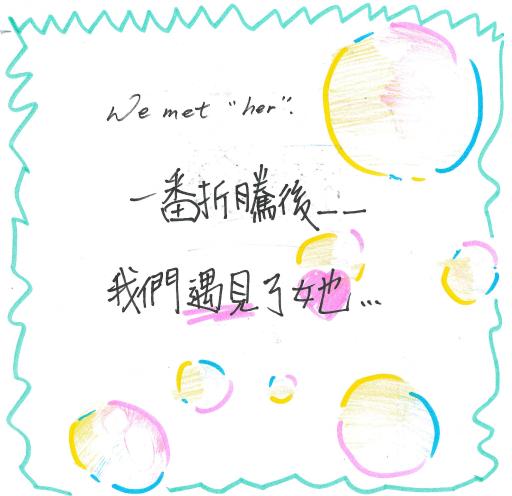 We met "her".
一番折騰後——
我們遇見了她...